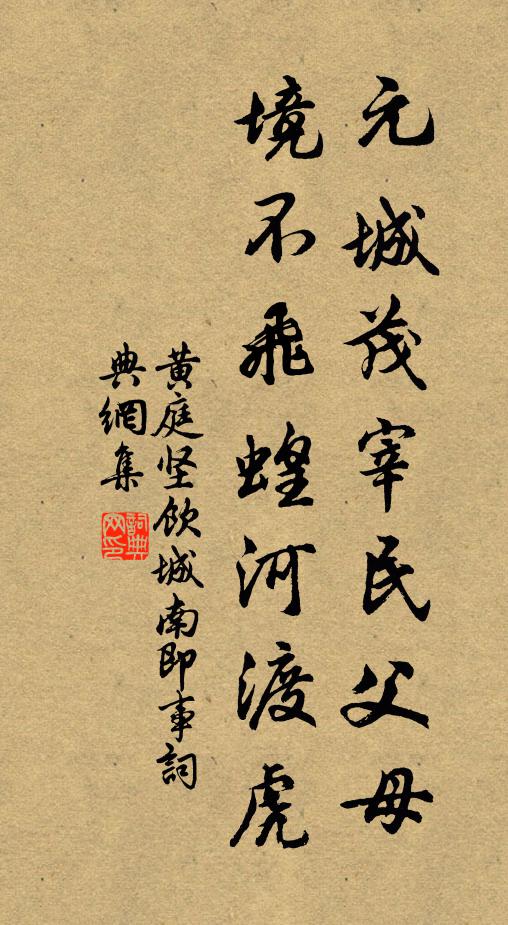 元城茂宰民父母
境不飛蝗河渡虎
黄庭坚飲城南即事詞
典網集
詞典网印